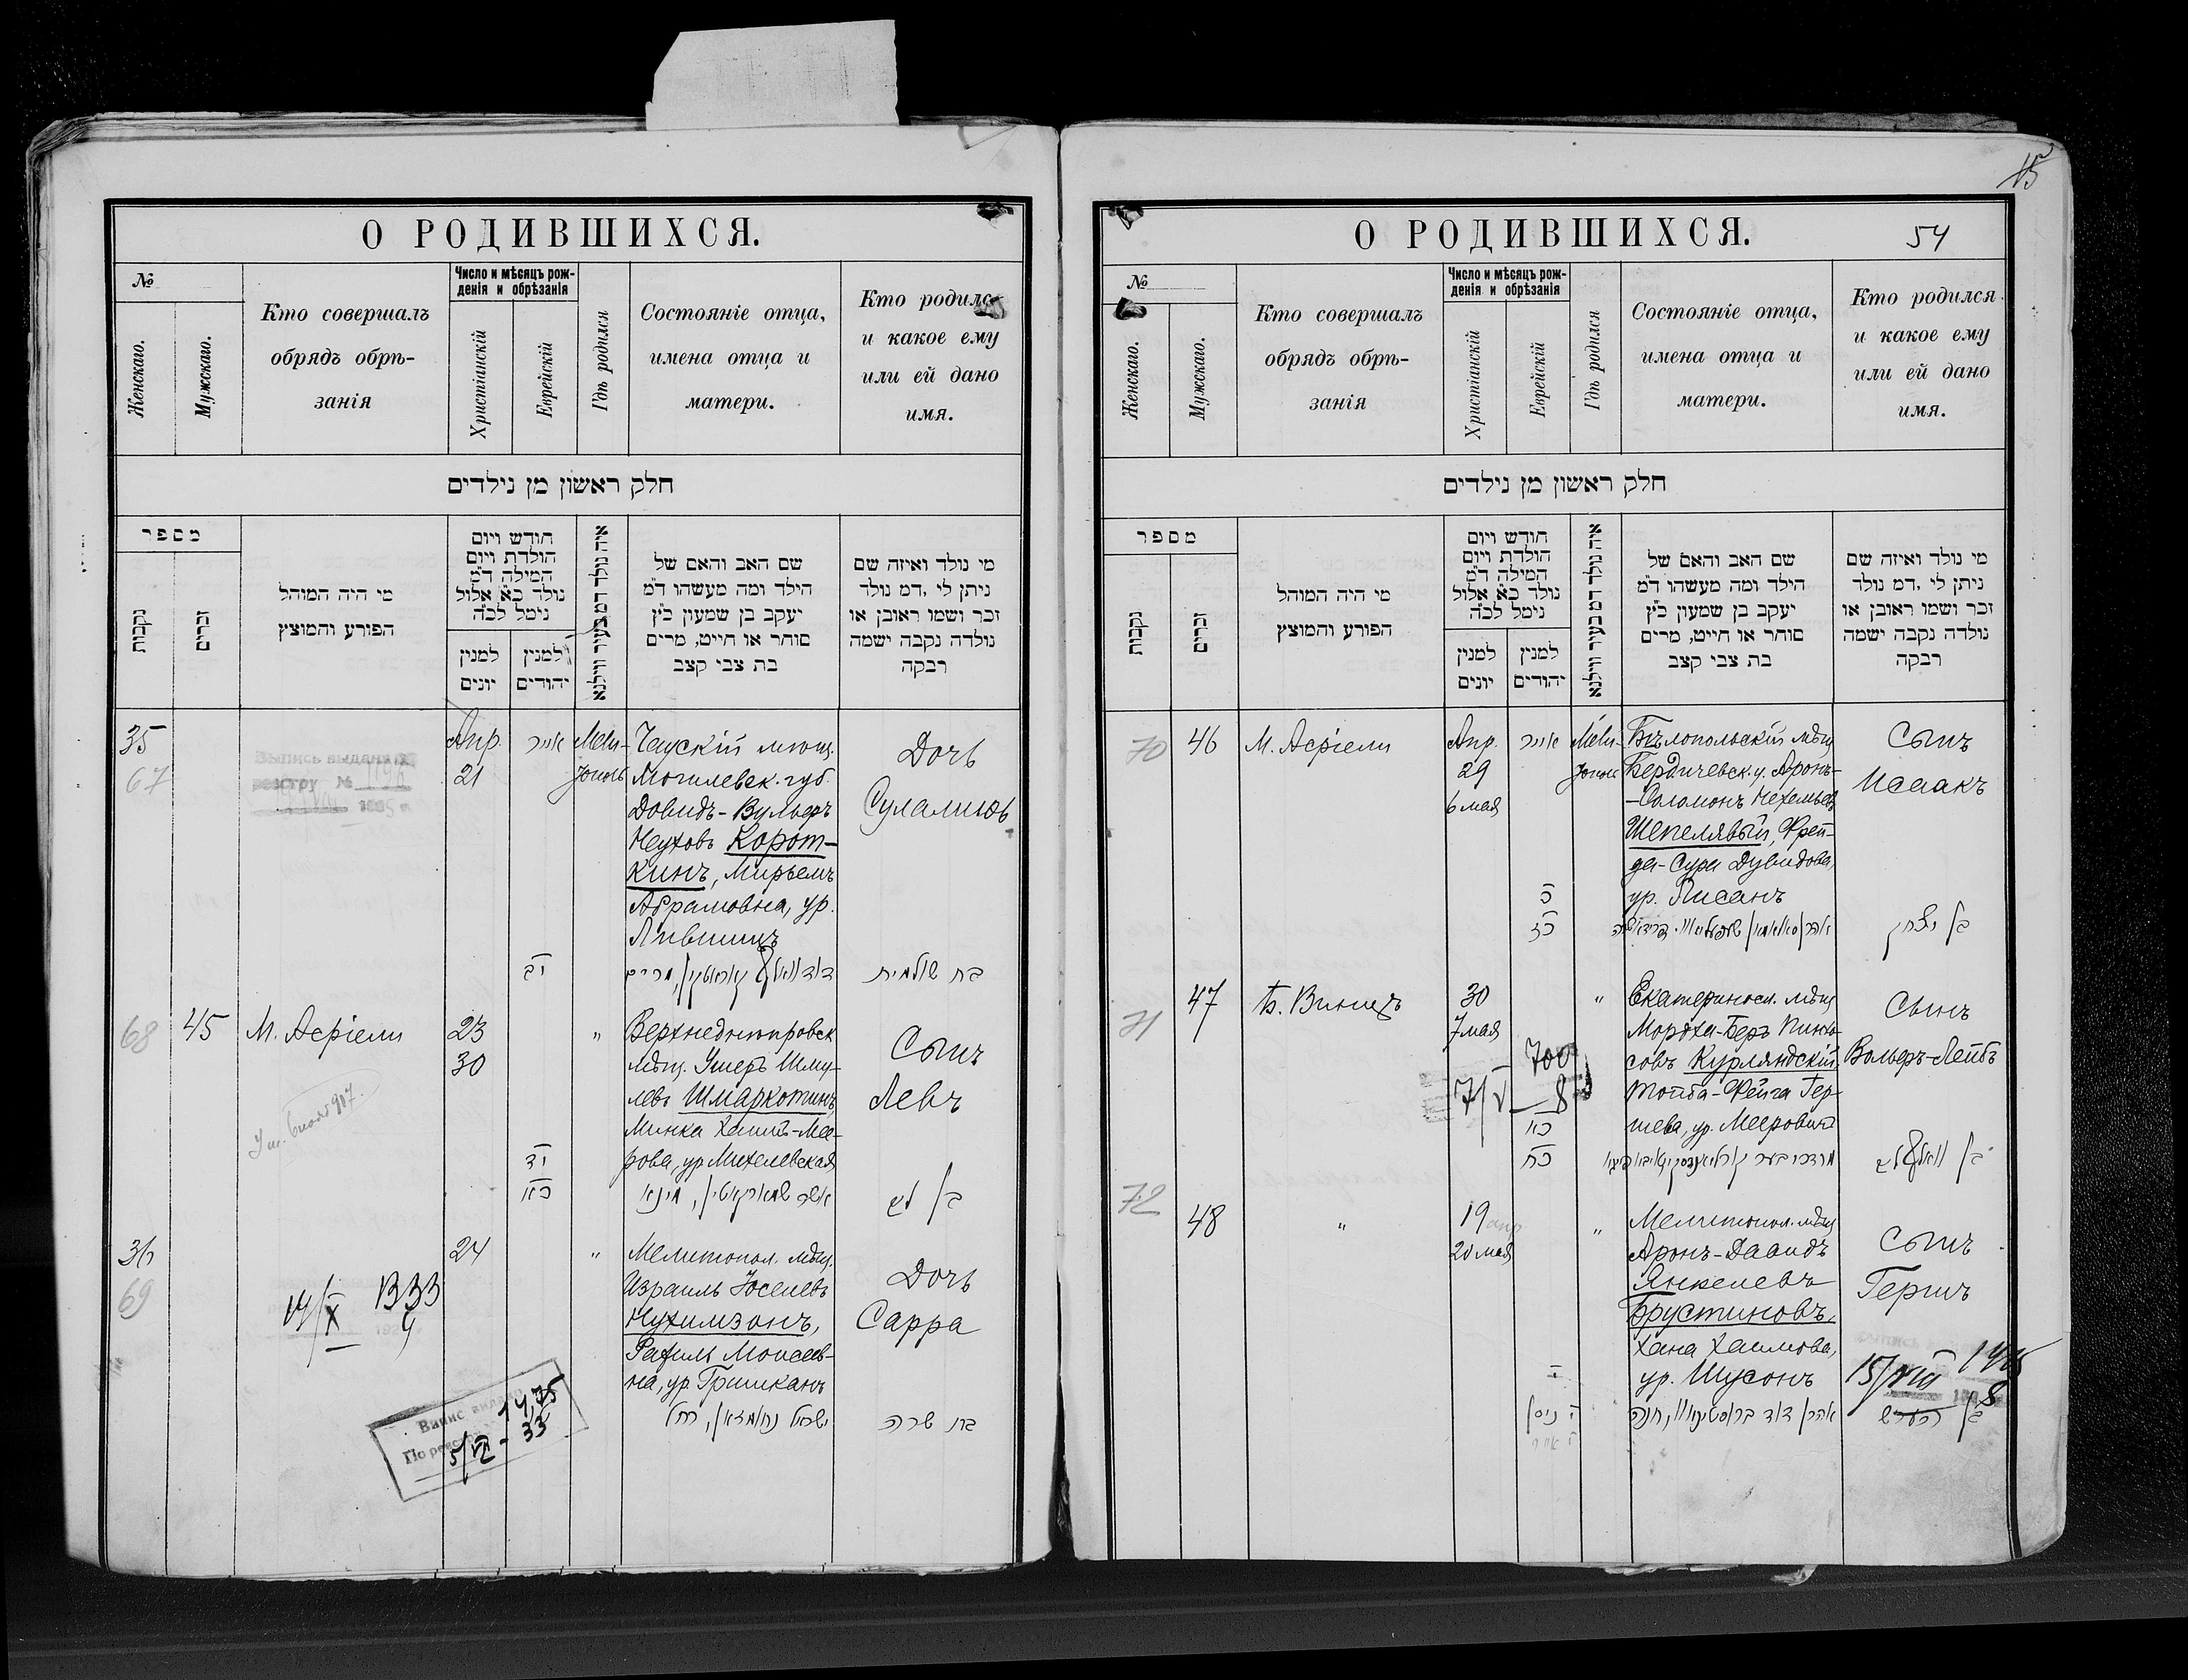 О РОДИВШИХСЯ.
№
Женскаго.
Мужскаго.
Кто совершалъ
обрядъ обрѣ-
занія
Число и мѣсяцъ рож-
денія и обрѣзанія
Христіанскій
Еврейскій
Гдѣ родился
Состояніе отца,
имена отца и
матери.
Кто родился
и какое ему
или ей дано
имя.
חלק ראשון מן נילדים
מספר
נקבות
זכרים
מי היה המוהל
הפורע והמוצץ
חודש ויום
הולדת ויום
המילה ד"מ
נולד כ"א אלול
נימל לכ"ה
למנין
יונים
למנין
יהודים
איה נולד דמ בעיר ווילנא
שם האב והאם של
הילד ומה מעשהו ד"מ
יעקב בן שמעון כ"ץ
סוחר או חייט, מרים
בת צבי קצב
מי נולד ואיזה שם
ניתן לי, דמ נולד
זכר ושמו ראובן או
נולדה נקבה ישמה
רבקה
35
67
Выпись выдана
реестру №
Апр.
21
אייר
יב
Мели-
тополь
Чаускій мѣщ.
Могилевск. губ.
Довидъ-Вульфъ
Неуховъ Корот-
кинъ, Мирьемъ
Абрамовна, ур.
Лившицъ
Дочь
Суламиѳь
בת שולמית
68
45
М. Асріели
23
30
יד
כא
"
Верхнеднѣпровск
мѣщ. Ушеръ Шму-
левъ Шмаркотинъ,
Минка Хаимъ-Мее-
рова, ур. Михелевская
Сынъ
Левъ
36
69
19/X 1333
24
"
Мелитопол. мѣщ.
Израиль Іосеневъ
Нухимзонъ,
Рахиль Моисеев-
на, ур. Гришканъ
Дочь
Сарра
בת שרה
14,75
5/VII - 33
О РОДИВШИХСЯ.
54
15
№
Женскаго.
Мужскаго.
Кто совершалъ
обрядъ обрѣ-
занія
Число и мѣсяцъ рож-
денія и обрѣзанія
Христіанскій
Еврейскій
Гдѣ родился
Состояніе отца,
имена отца и
матери.
Кто родился
и какое ему
или ей дано
имя.
חלק ראשון מן נילדים
מספר
נקבות
זכרים
מי היה המוהל
הפורע והמוצץ
חודש ויום
הולדת ויום
המילה ד"מ
נולד כ"א אלול
נימל לכ"ה
למנין
יונים
למנין
יהודים
איה נולד דמ בעיר ווילנא
שם האב והאם של
הילד ומה מעשהו ד"מ
יעקב בן שמעון כ"ץ
סוחר או חייט, מרים
בת צבי קצב
מי נולד ואיזה שם
ניתן לי, דמ נולד
זכר ושמו ראובן או
נולדה נקבה ישמה
רבקה
70
46
М. Асріели
Апр.
29
6 мая
אייר
כ
כז
Мели-
тополь
Бѣлопольскій мѣщ
Бердичевск. у. Аронъ-
-Соломонъ Нехемьевъ
Шепелявый, Фрей-
да-Сура Дувидова,
ур. Писанъ
Сынъ
Исаакъ
בן יצחק
71
47
Б. Виницъ
30
7 мая
700
7/V - 8
כא
כח
"
Екатериносл. мѣщ
Мордха-Беръ Пинха-
совъ Курляндскій,
Тойба-Фейга Гер-
шева, ур. Мееровичъ
Сынъ
Вольфъ-Лейбъ
72
48
"
19 апр
20 мая
י ניסן
"
Мелитопол. мѣщ
Аронъ-Давидъ
Янкелевъ
Брустиновъ,
Хана Хаимова,
ур. Шусонъ
אהרן דוד ברוסטינאוו, חנה
Сынъ
Гершъ
בן הערש